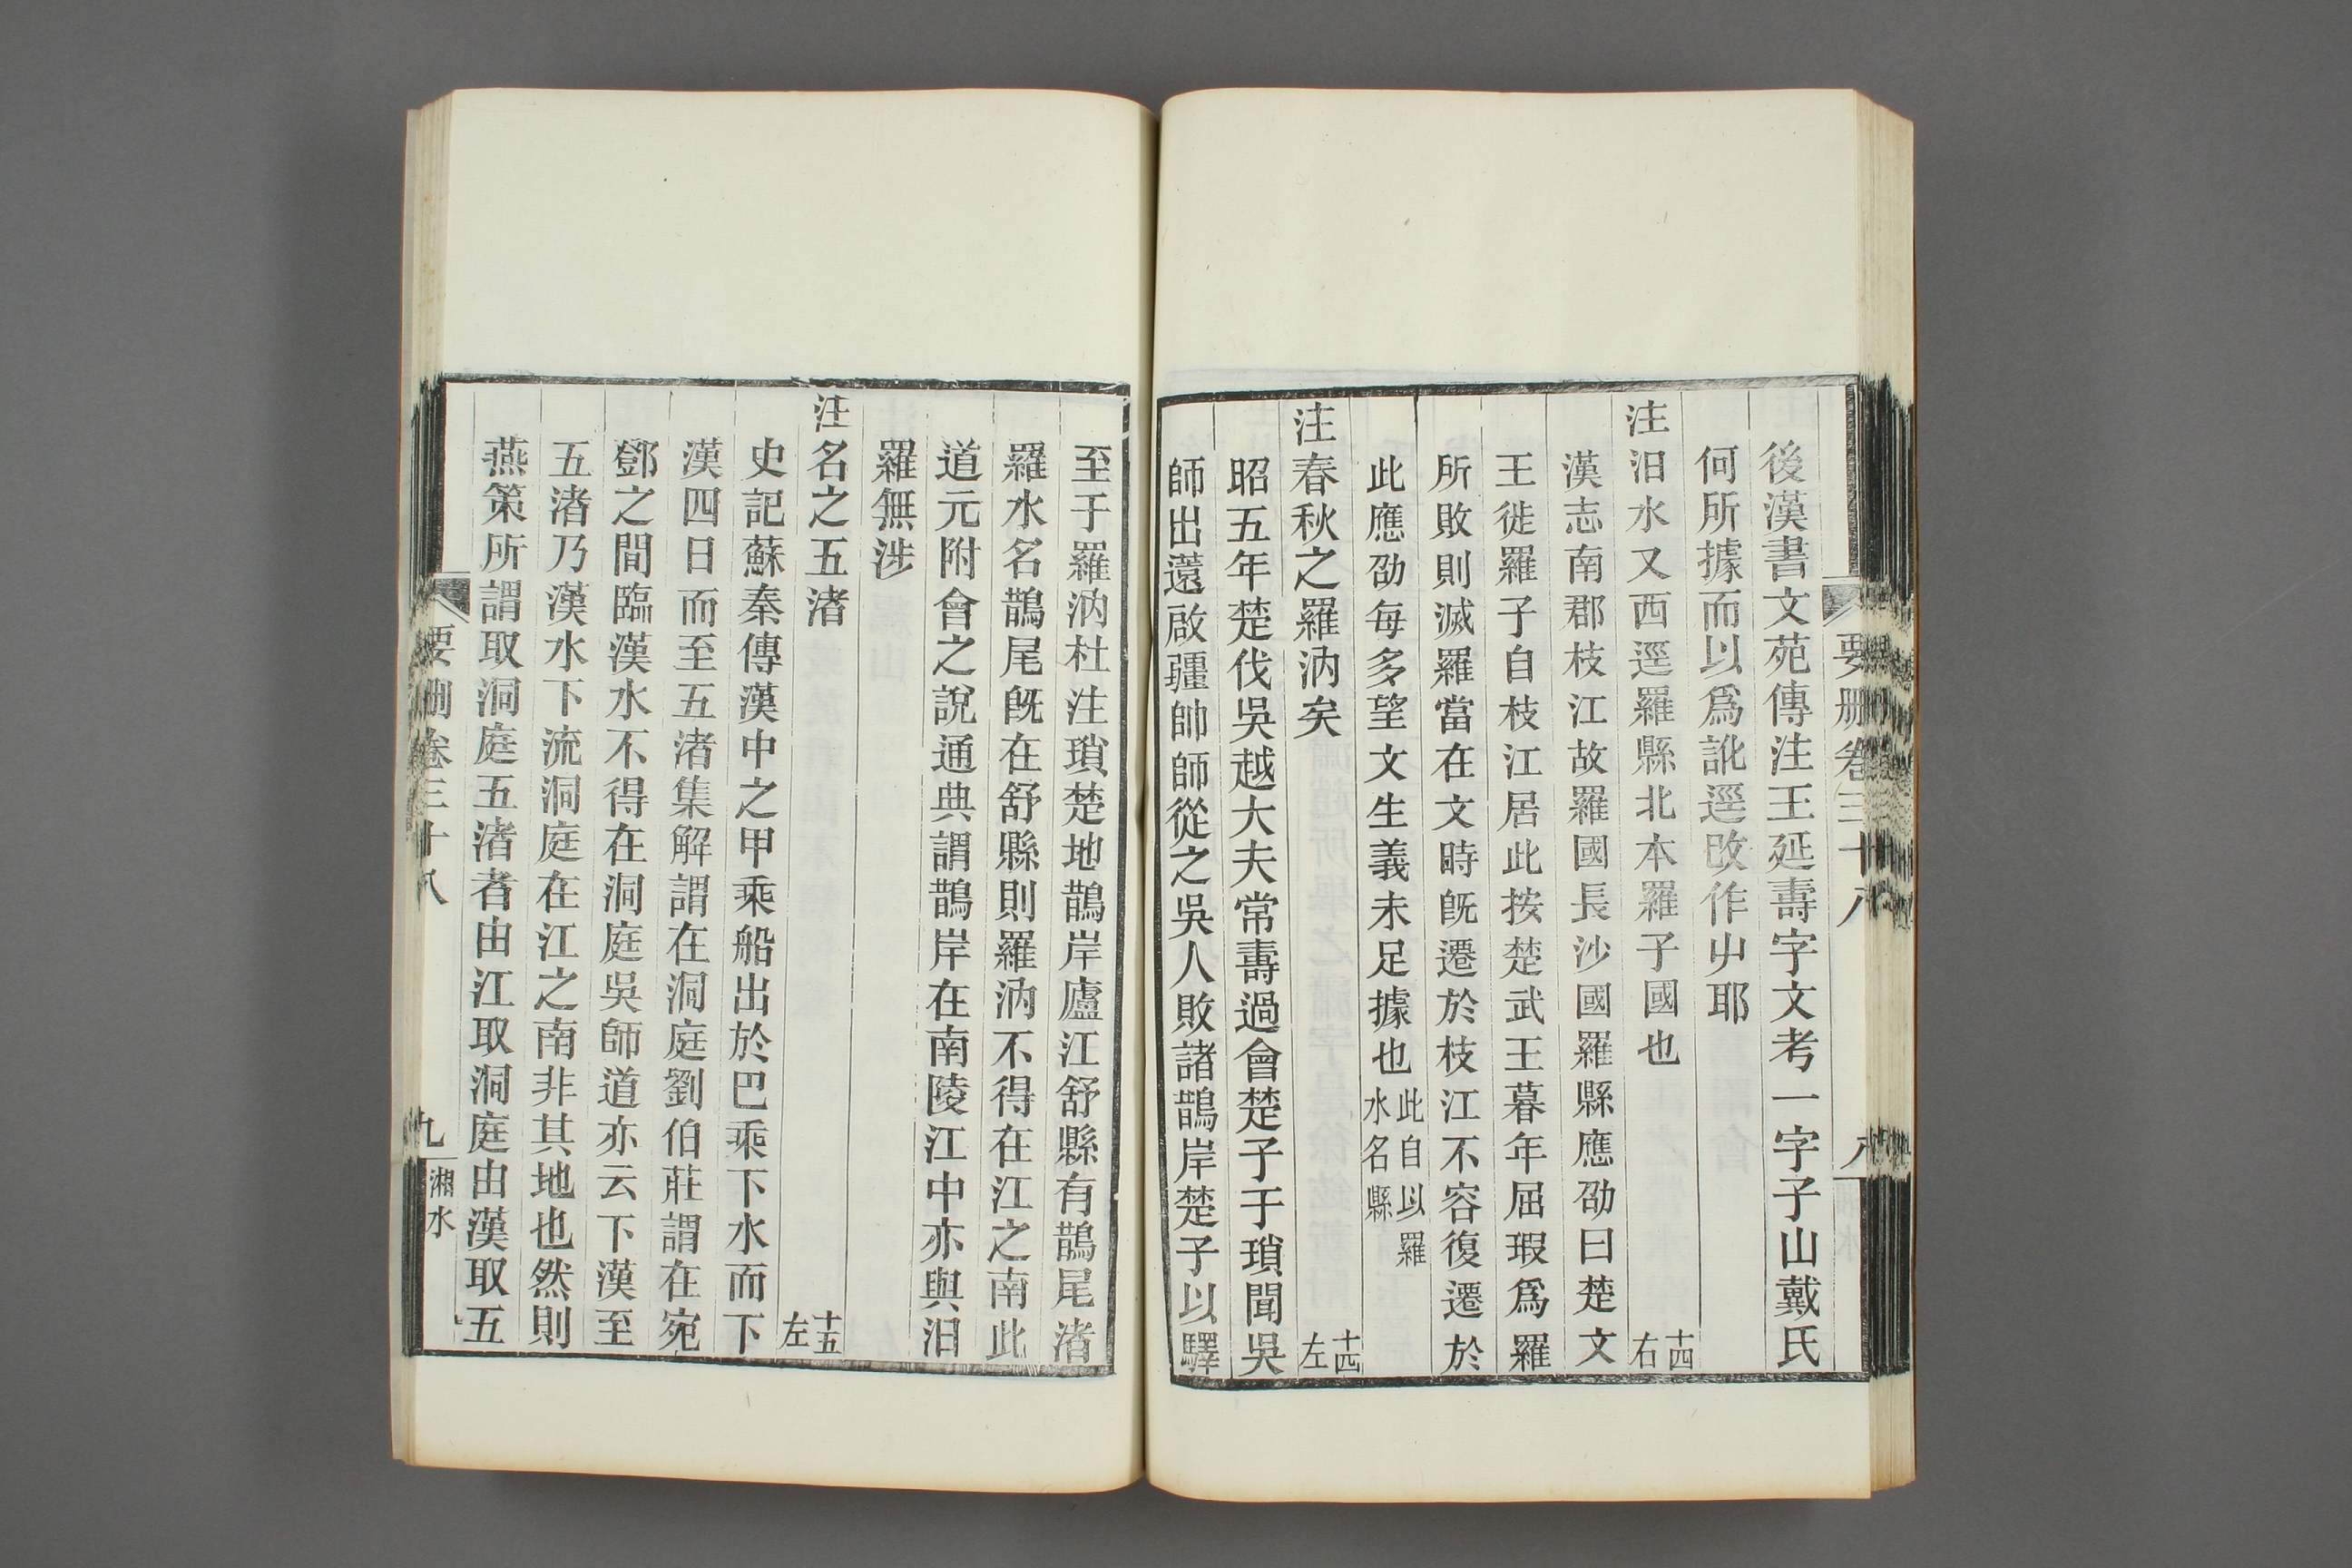 要刪卷三十八 八
後漢書文苑傳注王延壽字文考一字子山戴氏
何所據而以爲訛逕改作屮耶
注汨水又西逕羅縣北本羅子國也 十四右
漢志南郡枝江故羅國長沙國羅縣應劭曰楚文
王徙羅子自枝江居此按楚武王暮年屈瑕爲羅
所敗則滅羅當在文時旣遷於枝江不容復遷於
此應劭每多望文生義未足據也此自以羅水名縣
注春秋之羅汭矣 十四左
昭五年楚伐吳越大夫常壽過會楚子于瑣聞吳
師出薳啟疆帥師從之吳人敗諸鵲岸楚子以驛
至于羅汭杜注瑣楚地鵲岸廬江舒縣有鵲尾渚
羅水名鵲尾旣在舒縣則羅汭不得在江之南此
道元附會之說通典謂鵲岸在南陵江中亦與汨
羅無涉
注名之五渚 十五左
史記蘇秦傳漢中之甲乘船出於巴乘下水而下
漢四日而至五渚集解謂在洞庭劉伯莊謂在宛
鄧之間臨漢水不得在洞庭吳師道亦云下漢至
五渚乃漢水下流洞庭在江之南非其地也然則
燕策所謂取洞庭五渚者由江取洞庭由漢取五
要刪卷三十八 九 湘水